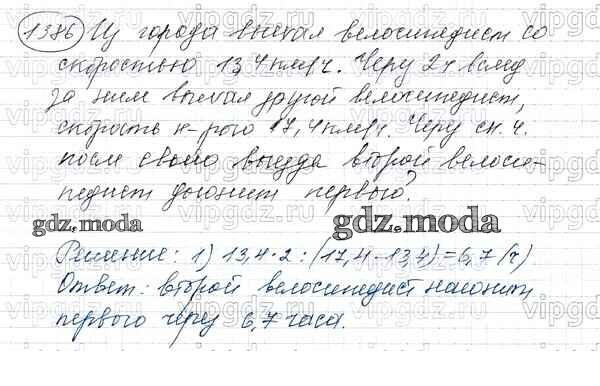 1386 Из города выехал велосипедист со
скоростью 13,4 км/ч. Через 2 ч вслед
за ним выехал другой велосипедист,
скорость к-рого 17,4 км/ч. Через ск. ч.
после своего выезда второй велоси-
педист догонит первого?
gdz.moda gdz.moda
Решение: 1) 13,4·2:(17,4-13,4)=6,7(ч).
Ответ: второй велосипедист нагонит
первого через 6,7 часа.
vipgdz.ru